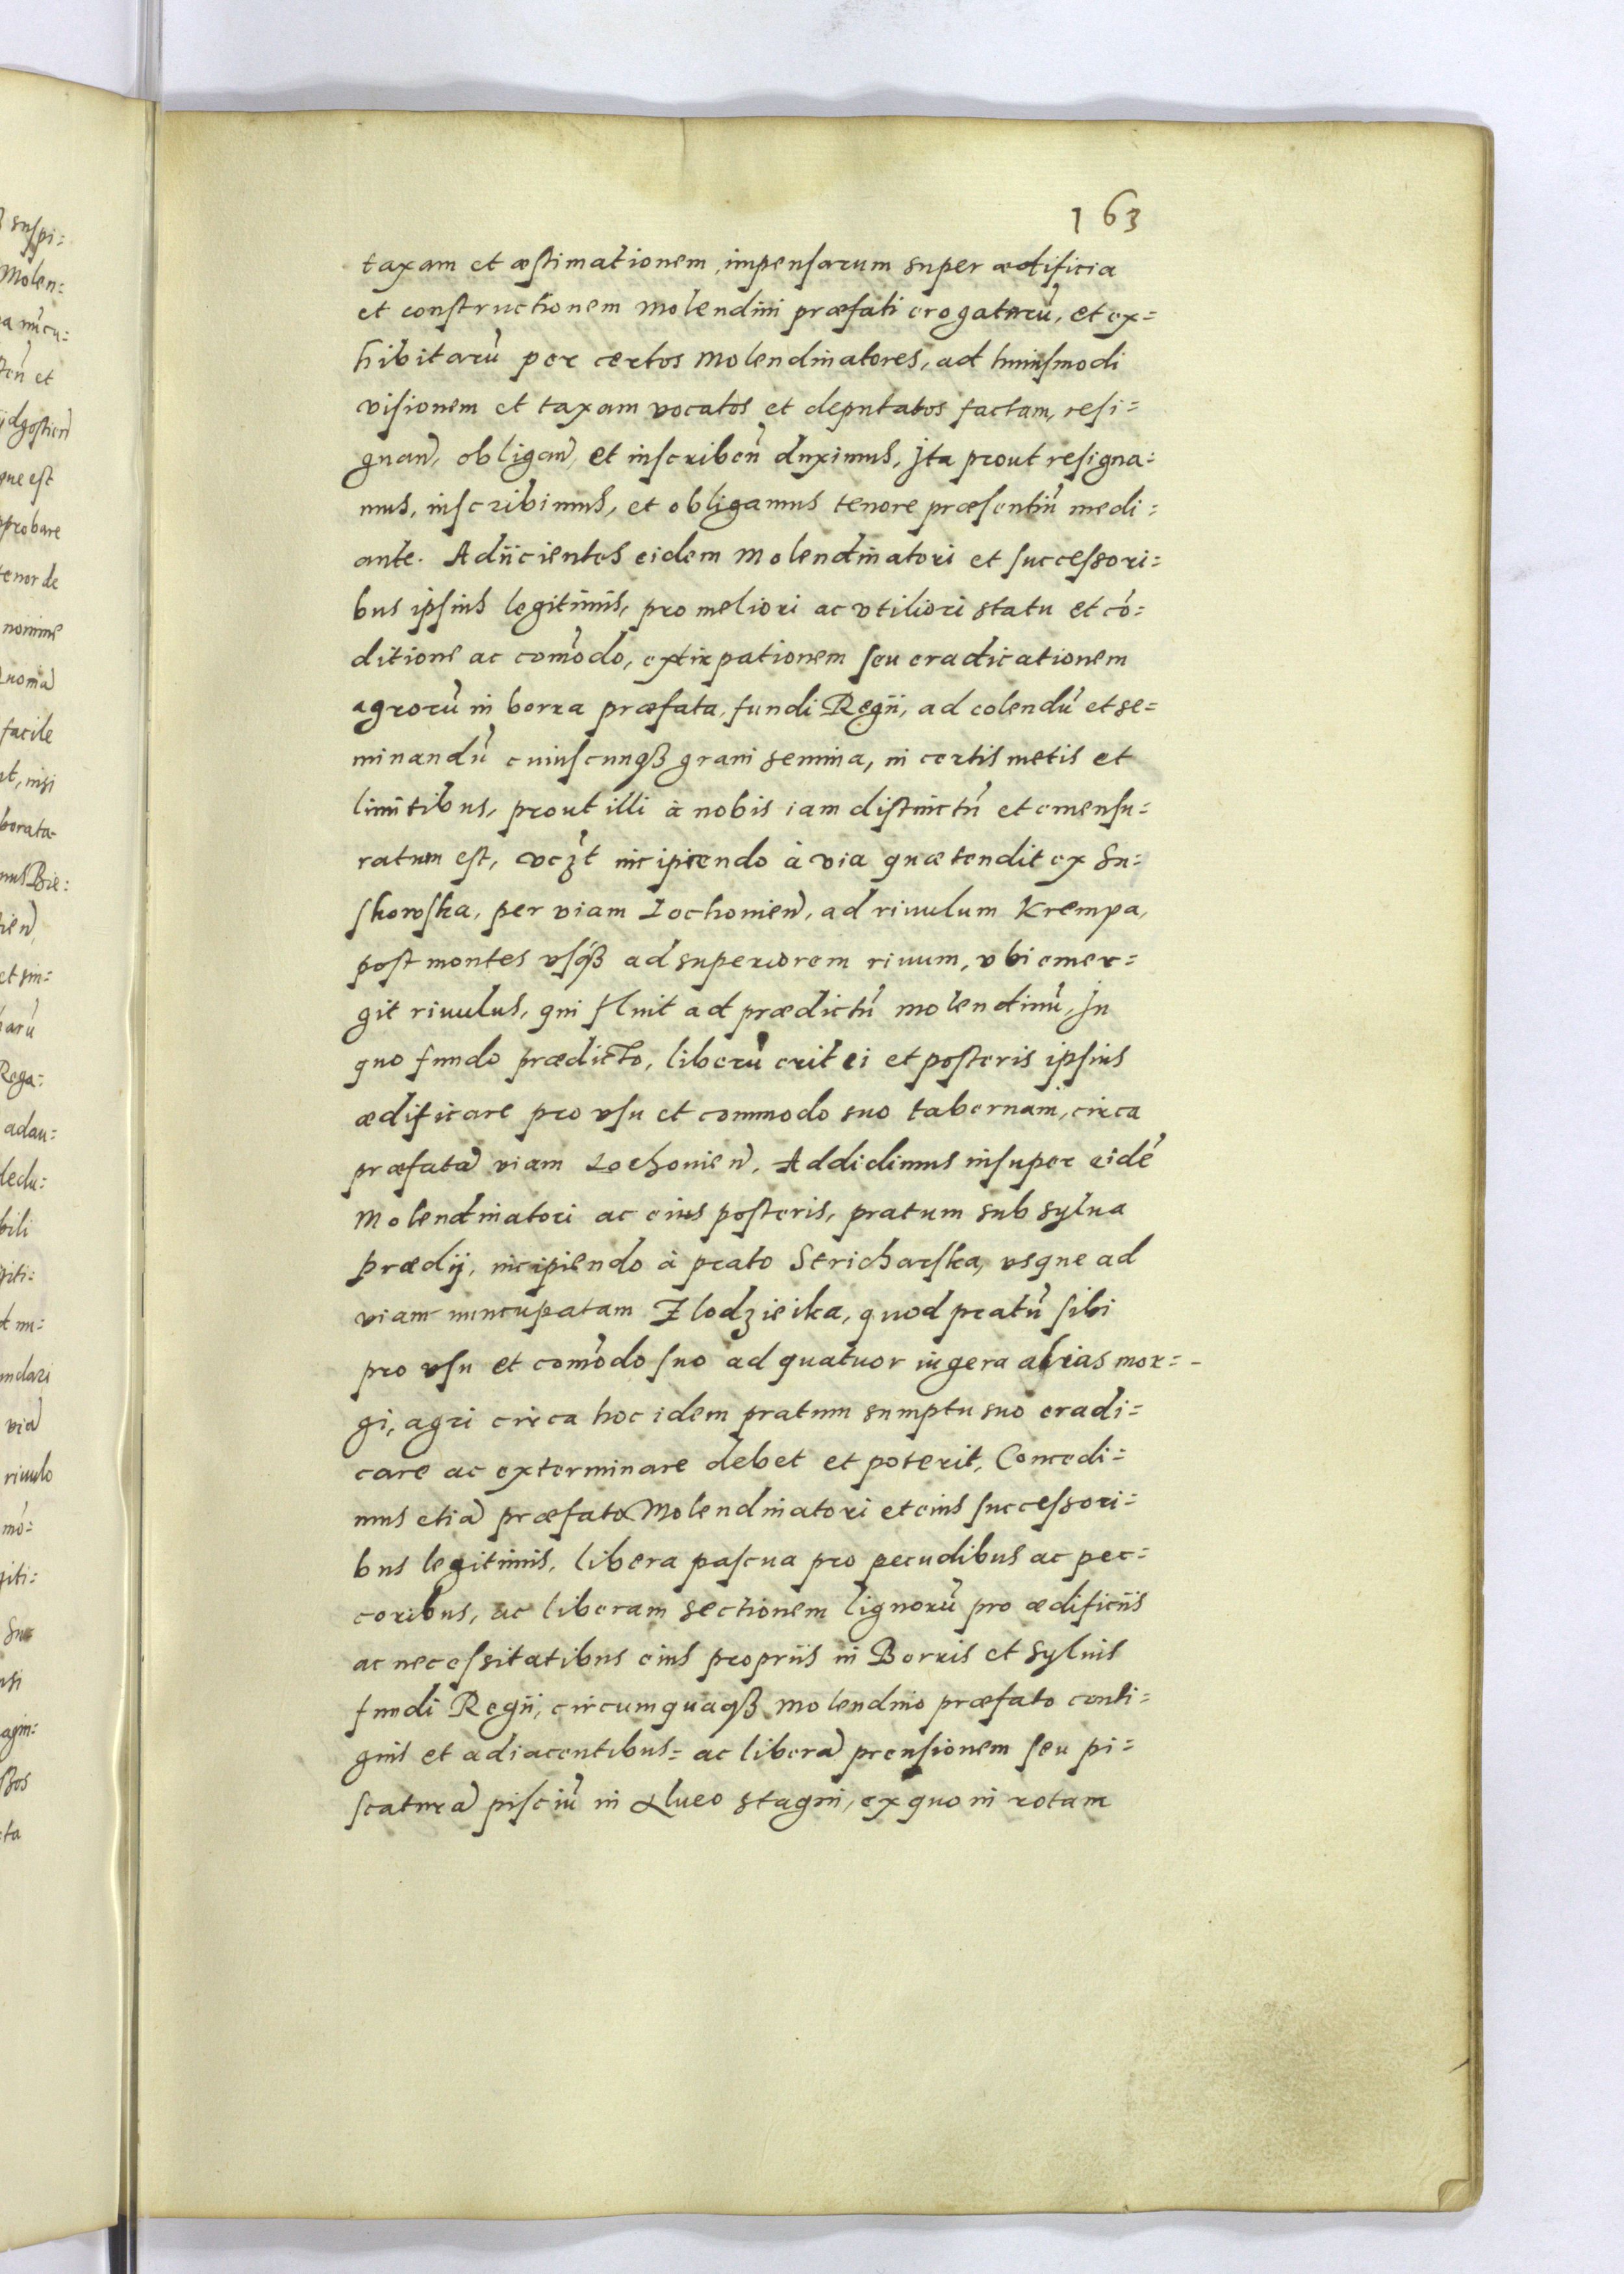 163
taxam et æstimationem, impensarum super ædificia
et constructionem molendini præfati erogatarū, et ex=
hibitarū per certos Molendinatores, ad huiusmodi
visionem et taxam vocatos et deputatos factam, resi=
gnan̄, obligan̄, et inscriben̄ duximus, Jta prout resigna=
mus, inscribimus, et obligamus tenore præsentiū medi=
ante. Adiicientes eidem Molendinatori et successori=
bus ipsius legitimis, pro meliori ac vtiliori statu et cō=
ditione ac com̄odo, extirpationem seu eradicationem
agrorū in borra præfata, fundi Regii, ad colendū et se=
minandū cuiuscunqȝ grani semina, in certis metis et
limitibus, prout illi à nobis iam distinctū et emensu=
ratum est, vcȝt incipiendo à via quæ tendit ex Su=
skowska, per viam Lochonien̄, ad riuulum Krempa,
post montes vsqȝ ad superiorem riuum, vbi emer=
git riuulus, qui fluit ad prædictū molendinū, Jn
quo fundo prædicto, liberū erit ei et posteris ipsius
ædificare pro vsu et commodo suo tabernam, circa
præfatā viam Lochonien̄. Addidimus insuper eidē
Molendinatori ac eius posteris, pratum sub sylua
prædij, incipiendo à prato Stricharska, vsque ad
viam nuncupatam Zlodzieika, quod pratū sibi
pro vsu et com̄odo suo ad quatuor iugera alias mor=
gi, agri circa hoc idem pratum sumptu suo eradi=
care ac exterminare debet et poterit, Concedi=
mus etiā præfato Molendinatori et eius successori=
bus legitimis, libera pascua pro pecudibus ac pec=
coribus, ac liberam sectionem lignorū pro ædificiis
ac necessitatibus eius propriis in Borris et Syluis
fundi Regii, circumquaqȝ molendino præfato conti=
guis et adiacentibus= ac liberā prensionem seu pi=
scaturā pisciū in alueo stagni, ex quo in rotam